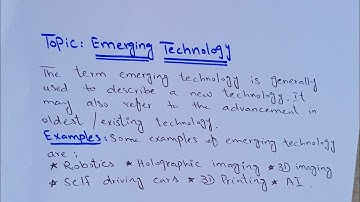 Topic: Emerging Technology
The term emerging technology is generally
used to describe a new technology. It
may also refer to the advancement in
oldest / existing technology.
Examples. Some examples of emerging technology
are ;
* Robotics * Holographic imaging * 3D imaging
* Self driving cars * 3D Printing * AI.